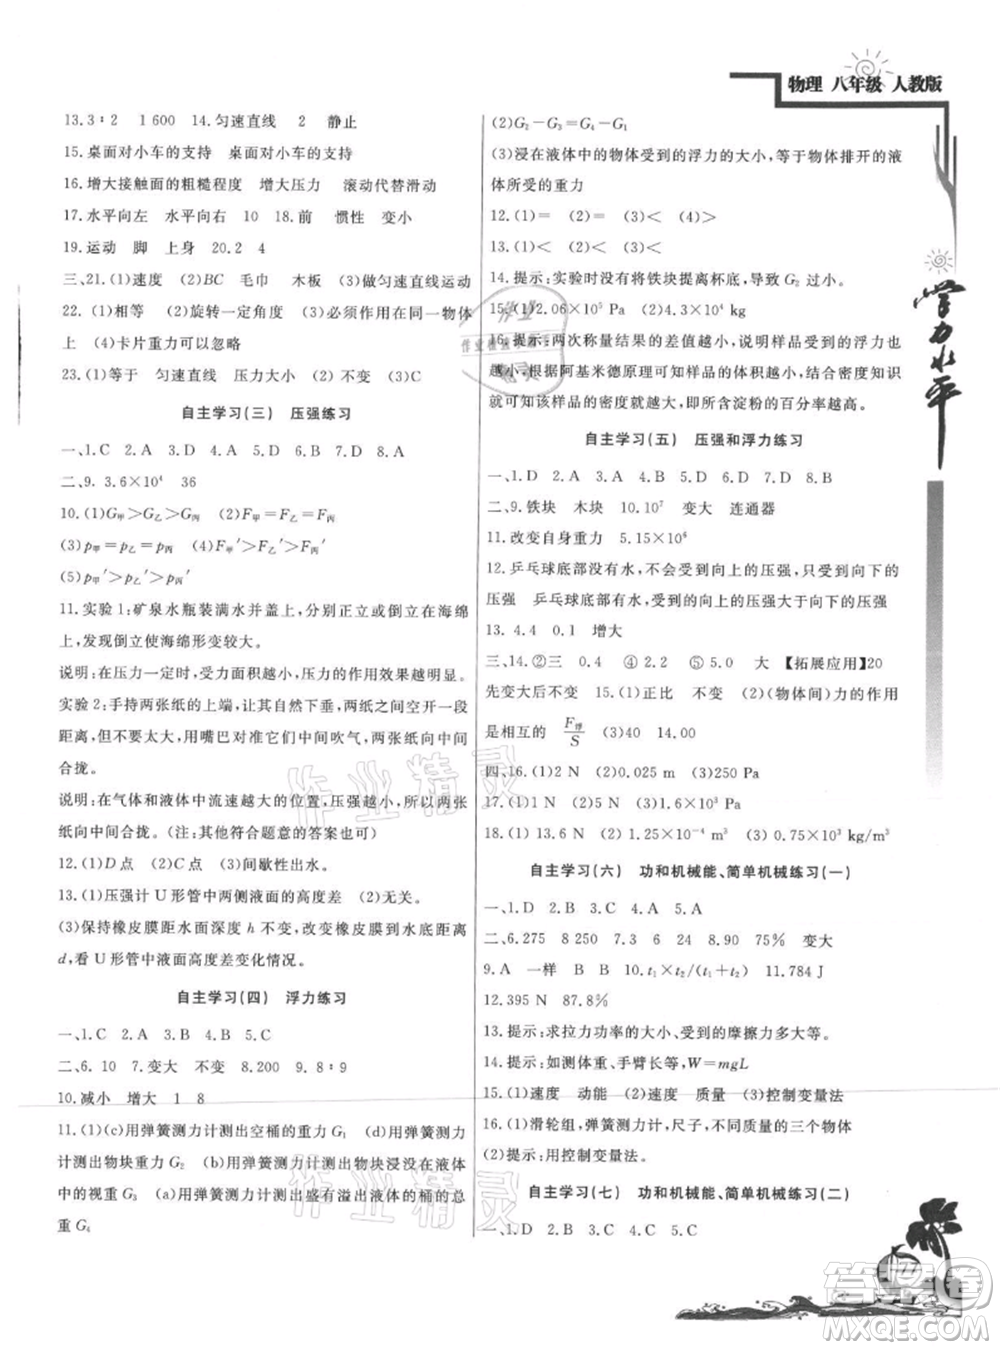 物理 八年级 人教版
13.3∶2 1 600 14.匀速直线 2 静止
15.桌面对小车的支持 桌面对小车的支持
16.增大接触面的粗糙程度 增大压力 滚动代替滑动
17.水平向左 水平向右 10 18.前 惯性 变小
19.运动 脚 上身 20.2 4
三、21.(1)速度 (2)BC 毛巾 木板 (3)做匀速直线运动
22.(1)相等 (2)旋转一定角度 (3)必须作用在同一物体
上 (4)卡片重力可以忽略
23.(1)等于 匀速直线 压力大小 (2)不变 (3)C
自主学习(三) 压强练习
一、1.C 2.A 3.D 4.A 5.B 6.B 7.A 8.D
二、9.3.6×10⁴ 36
10.(1)G甲>G乙>G丙 (2)F甲=F乙=F丙
(3)p甲=p乙=p丙 (4)F甲′>F乙′>F丙′
(5)p甲′>p乙′>p丙′
11.实验1:矿泉水瓶装满水并盖上,分别正立或倒立在海绵
上,发现倒立使海绵形变较大。
说明:在压力一定时,受力面积越小,压力的作用效果越明显。
实验2:手持两张纸的上端,让其自然下垂,两纸空开一段
距离,但不要太大,用嘴巴在中间吹气,两纸向中间
合拢。
说明:在气体和液体中流速越大的位置,压强越小,所以两张
纸向中间合拢。(注:其他符合题意的答案也可)
12.(1)D点 (2)C点 (3)间歇性出水。
13.(1)压强计U形管中两侧液面的高度差 (2)不变。
(3)保持橡皮膜距水面深度h不变,改变橡皮膜到水底距离
d,看U形管中液面高度差变化情况。
自主学习(四) 浮力练习
一、1.C 2.A 3.D 4.B 5.C
二、6. 10 7.变大 不变 8.200 9. 8∶9
10.减小 增大 1 8
11.(1)(c)用弹簧测力计测出空桶的重力G₁ (d)用弹簧测力
计测出物块重力G₂ (b)用弹簧测力计测出物块浸没在液体
中的视重G₃ (a)用弹簧测力计测出盛有溢出液体的桶的总
重G₄
(2)G₂－G₃＝G₄－G₁
(3)浸在液体中的物体受到的浮力的大小,等于物体排开的液
体所受的重力
12.(1)＝ (2)＝ (3)< (4)>
13.(1)< (2)< (3)<
14.提示:实验时没有将铁块提离杯底,导致G₂过小。
15.(1)2.06×10⁵ Pa (2)4.3×10⁴ kg
16.提示:两次称量结果的差值越小,说明样品的浮力越小,浮力
越小,根据阿基米德原理可知样品的体积越小,由密度公式
就可以知该样品的密度就越大,即所含淀粉的百分率越高。
自主学习(五) 压强和浮力练习
一、1.D 2.A 3.D 4.C 5.A 6.D 7.D 8.B
二、9.铁块 木块 10.10⁷ 变大 连通器
11.改变自身重力 5.15×10⁶
12.乒乓球底部没有水,不会受到向上的压强,只受到向下的
压强 乒乓球底部有水,受到的向上的压强大于向下的压强
13. 4.4 0.1 增大
三、14.②三 0.4 ④2.2 ⑤5.0 大 【拓展应用】20
先变大后不变 15.(1)正比 不变 (2)(物体间)力的作用
是相互的 F浮/S (3)40 14.00
四、16.(1)2 N (2)0.025 m (3)250 Pa
17.(1)1 N (2)5 N (3)1.6×10³ Pa
18.(1) 13.6 N (2) 1.25×10⁻⁴ m³ (3) 0.75×10³ kg/m³
自主学习(六) 功和机械能、简单机械练习(一)
一、1.D 2.B 3.B 4.C 5.A
二、6.275 8 250 7.60 4 8.90 75% 变大
9.A 一样 B B 10.t₁×t₂/(t₁＋t₂) 11.784 J
12.395 N 87.8%
13.提示:求拉力功率的大小、受到的摩擦力多大等。
14.提示:如测体重、手臂长等,W＝mgL
15.(1)速度 动能 (2)速度 质量 (3)控制变量法
16.(1)滑轮组,弹簧测力计,尺子,不同质量的三个物体
(2)提示:用控制变量法。
自主学习(七) 功和机械能、简单机械练习(二)
一、1.C 2.D 3.C 4.B 5.B
学力水平
作业精灵
作业精灵
答案圈
MXQE.COM